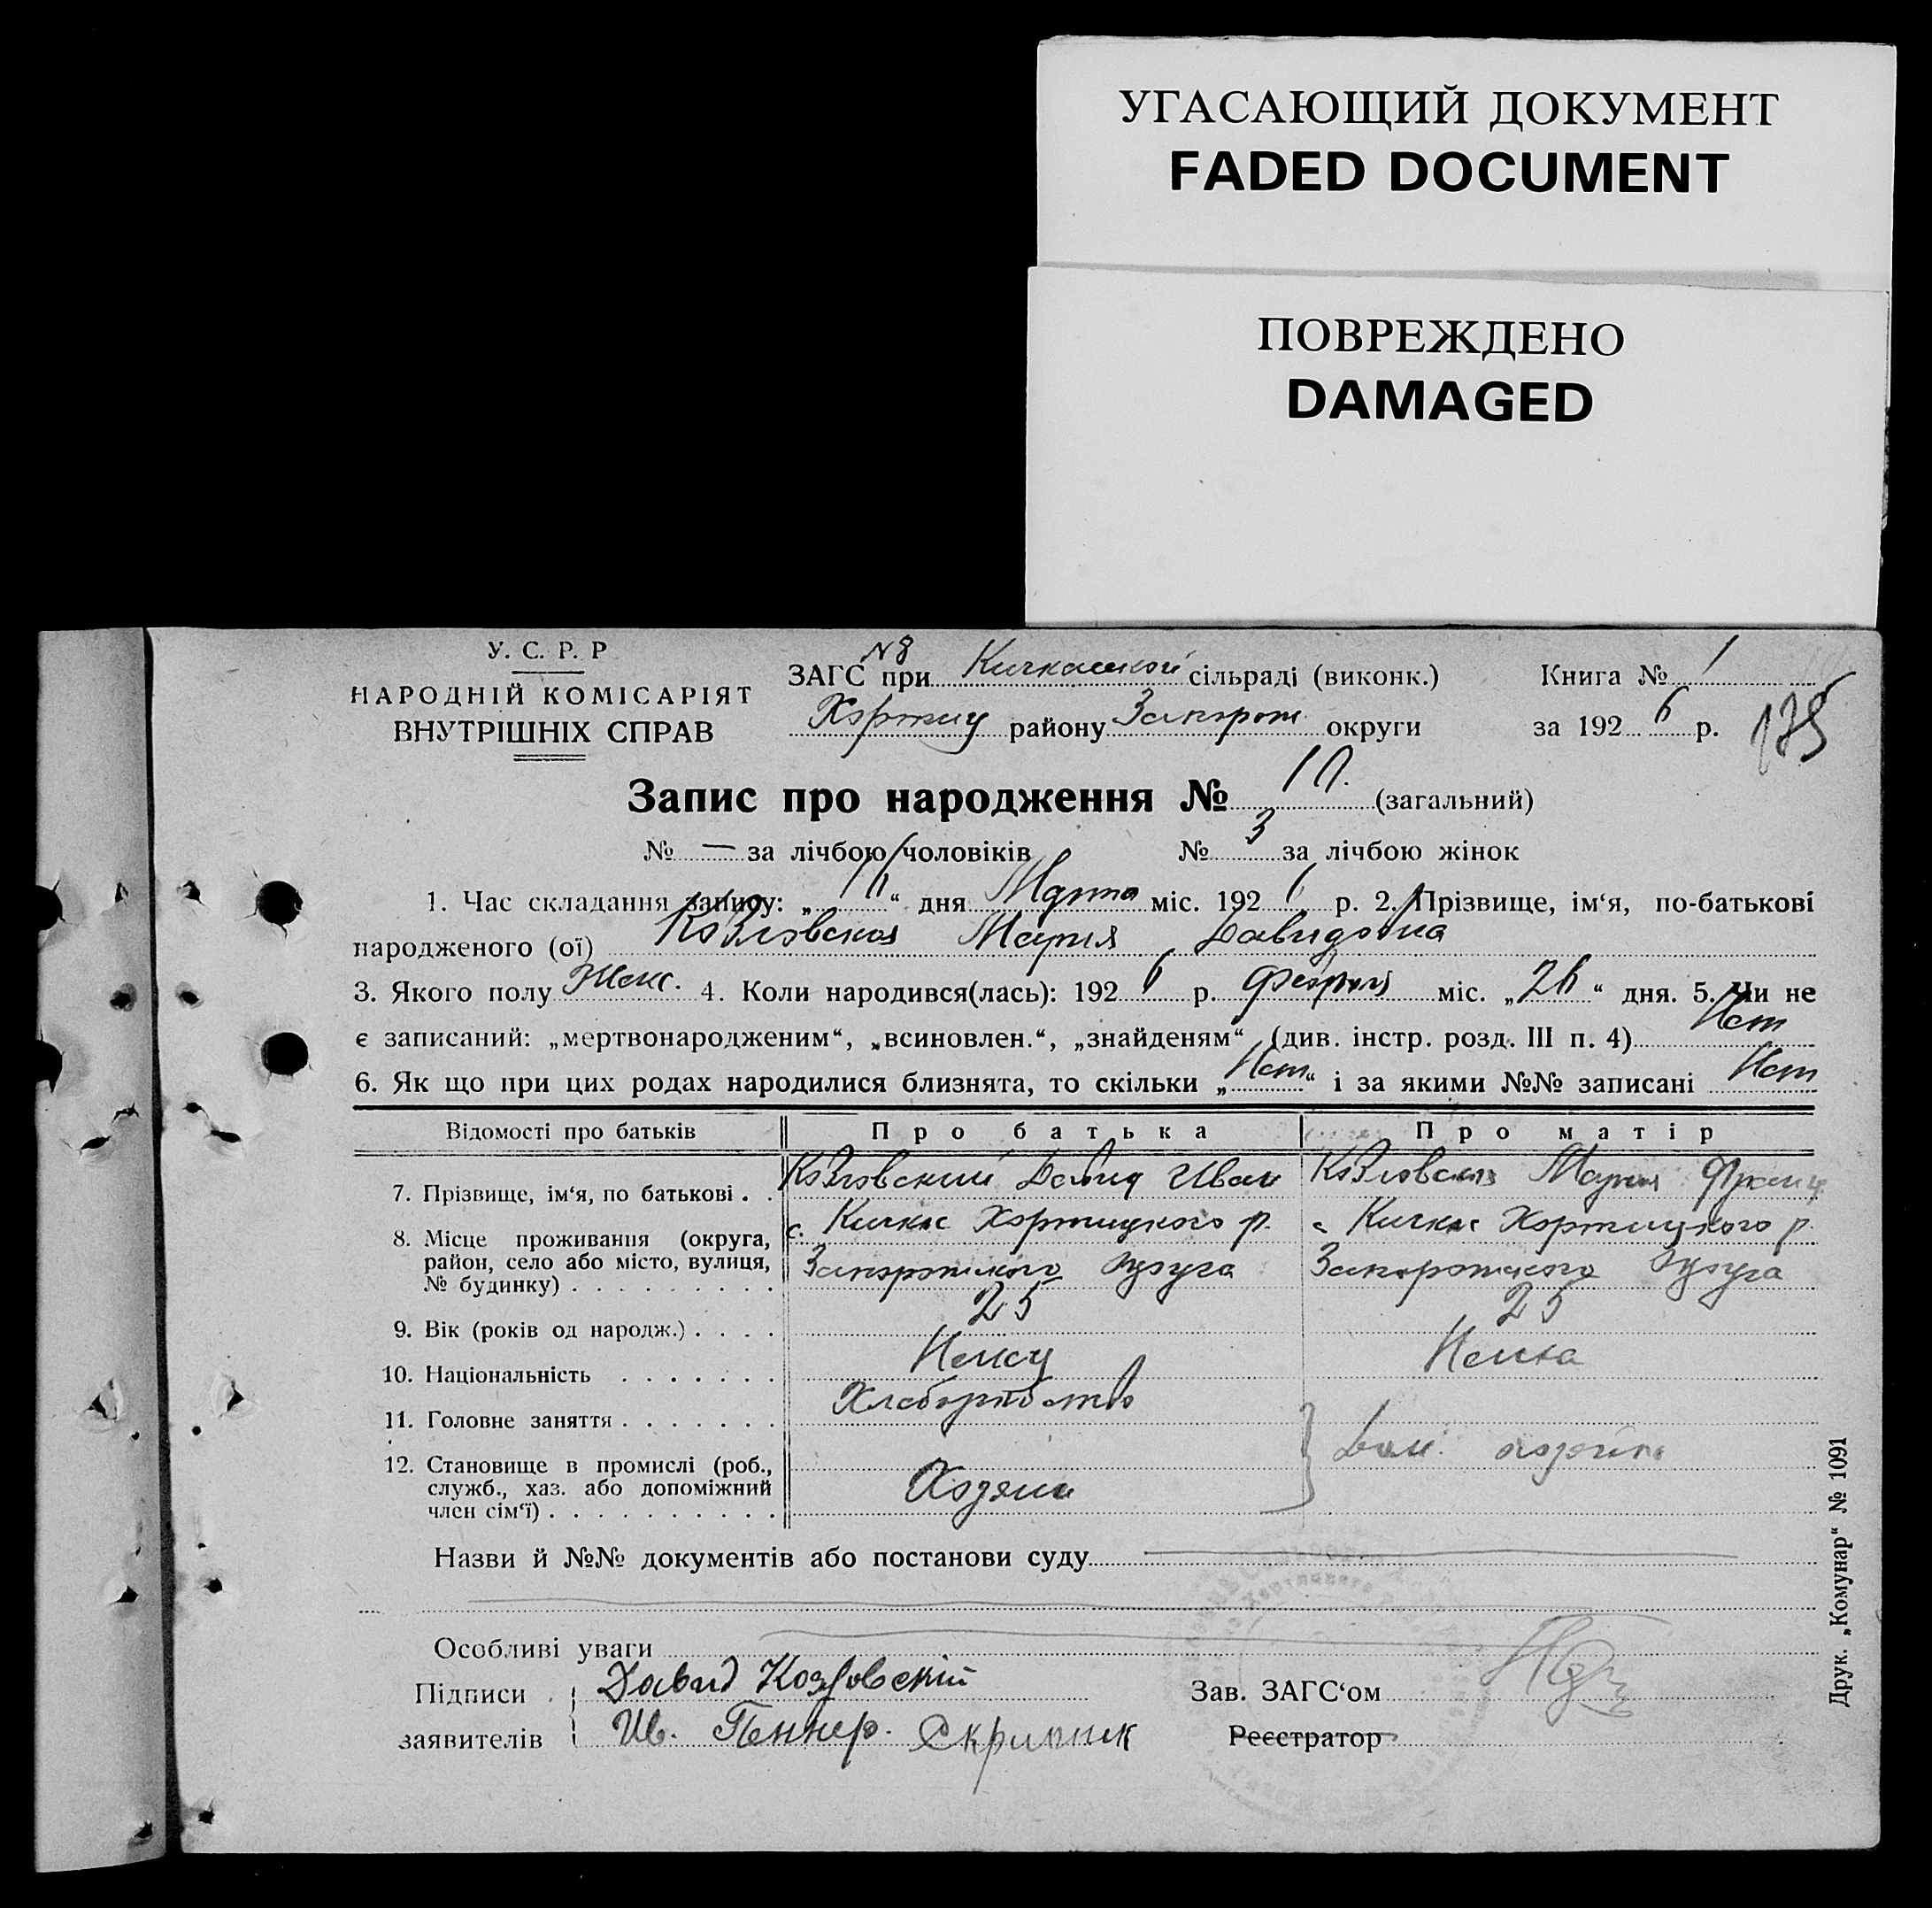 УГАСАЮЩИЙ ДОКУМЕНТ
FADED DOCUMENT
ПОВРЕЖДЕНО
DAMAGED
У. С. Р. Р
НАРОДНІЙ КОМІСАРІЯТ
ВНУТРІШНІХ СПРАВ
N8
ЗАГС при Кичкасской сільраді (виконк.)
Хортиц району Запорож округи
Книга № 1
за 192 6 р.
Запис про народження № (загальний)
№ — за лічбою чоловіків № 3 за лічбою жінок
1. Час складання запису: „ 11 “ дня Марта міс. 192 6 р. 2. Прізвище, ім‘я, по-батькові
народженого (ої) Козловская Мария Давидовна
3. Якого полу Женс. 4. Коли народився(лась): 192 6 р. Февраля міс. „ 26 “ дня. 5. Чи не
є записаний: „мертвонародженим“, „всиновлен.“, „знайденям“ (див. інстр. розд. III п. 4) Нет
6. Як що при цих родах народилися близнята, то скільки „ Нет “ і за якими №№ записані Нет
Відомості про батьків Про батька Про матір
7. Прізвище, ім‘я, по батькові . . Козловский Давид Иван Козловская Мария Франц
8. Місце проживання (округа, район, село або місто, вулиця, № будинку) . . . . . . . . .
с. Кичкас Хортицкого р. с Кичкас Хортицкого р.
Запорожского округа Запорожского округа
9. Вік (років од народж.) . . . . 25 25
10. Національність . . . . . . . Немец Немка
11. Головне заняття . . . . . . . Хлеборобство
12. Становище в промислі (роб., служб., хаз. або допоміжний член сім‘ї) . . . . . . . . . . Хозяин
Дом. хозяйка
Назви й №№ документів або постанови суду
Особливі уваги
Підписи Давид Козловскій Зав. ЗАГС‘ом
заявителів Ив. Пеннер. Реєстратор
Друк. „Комунар“ № 1091